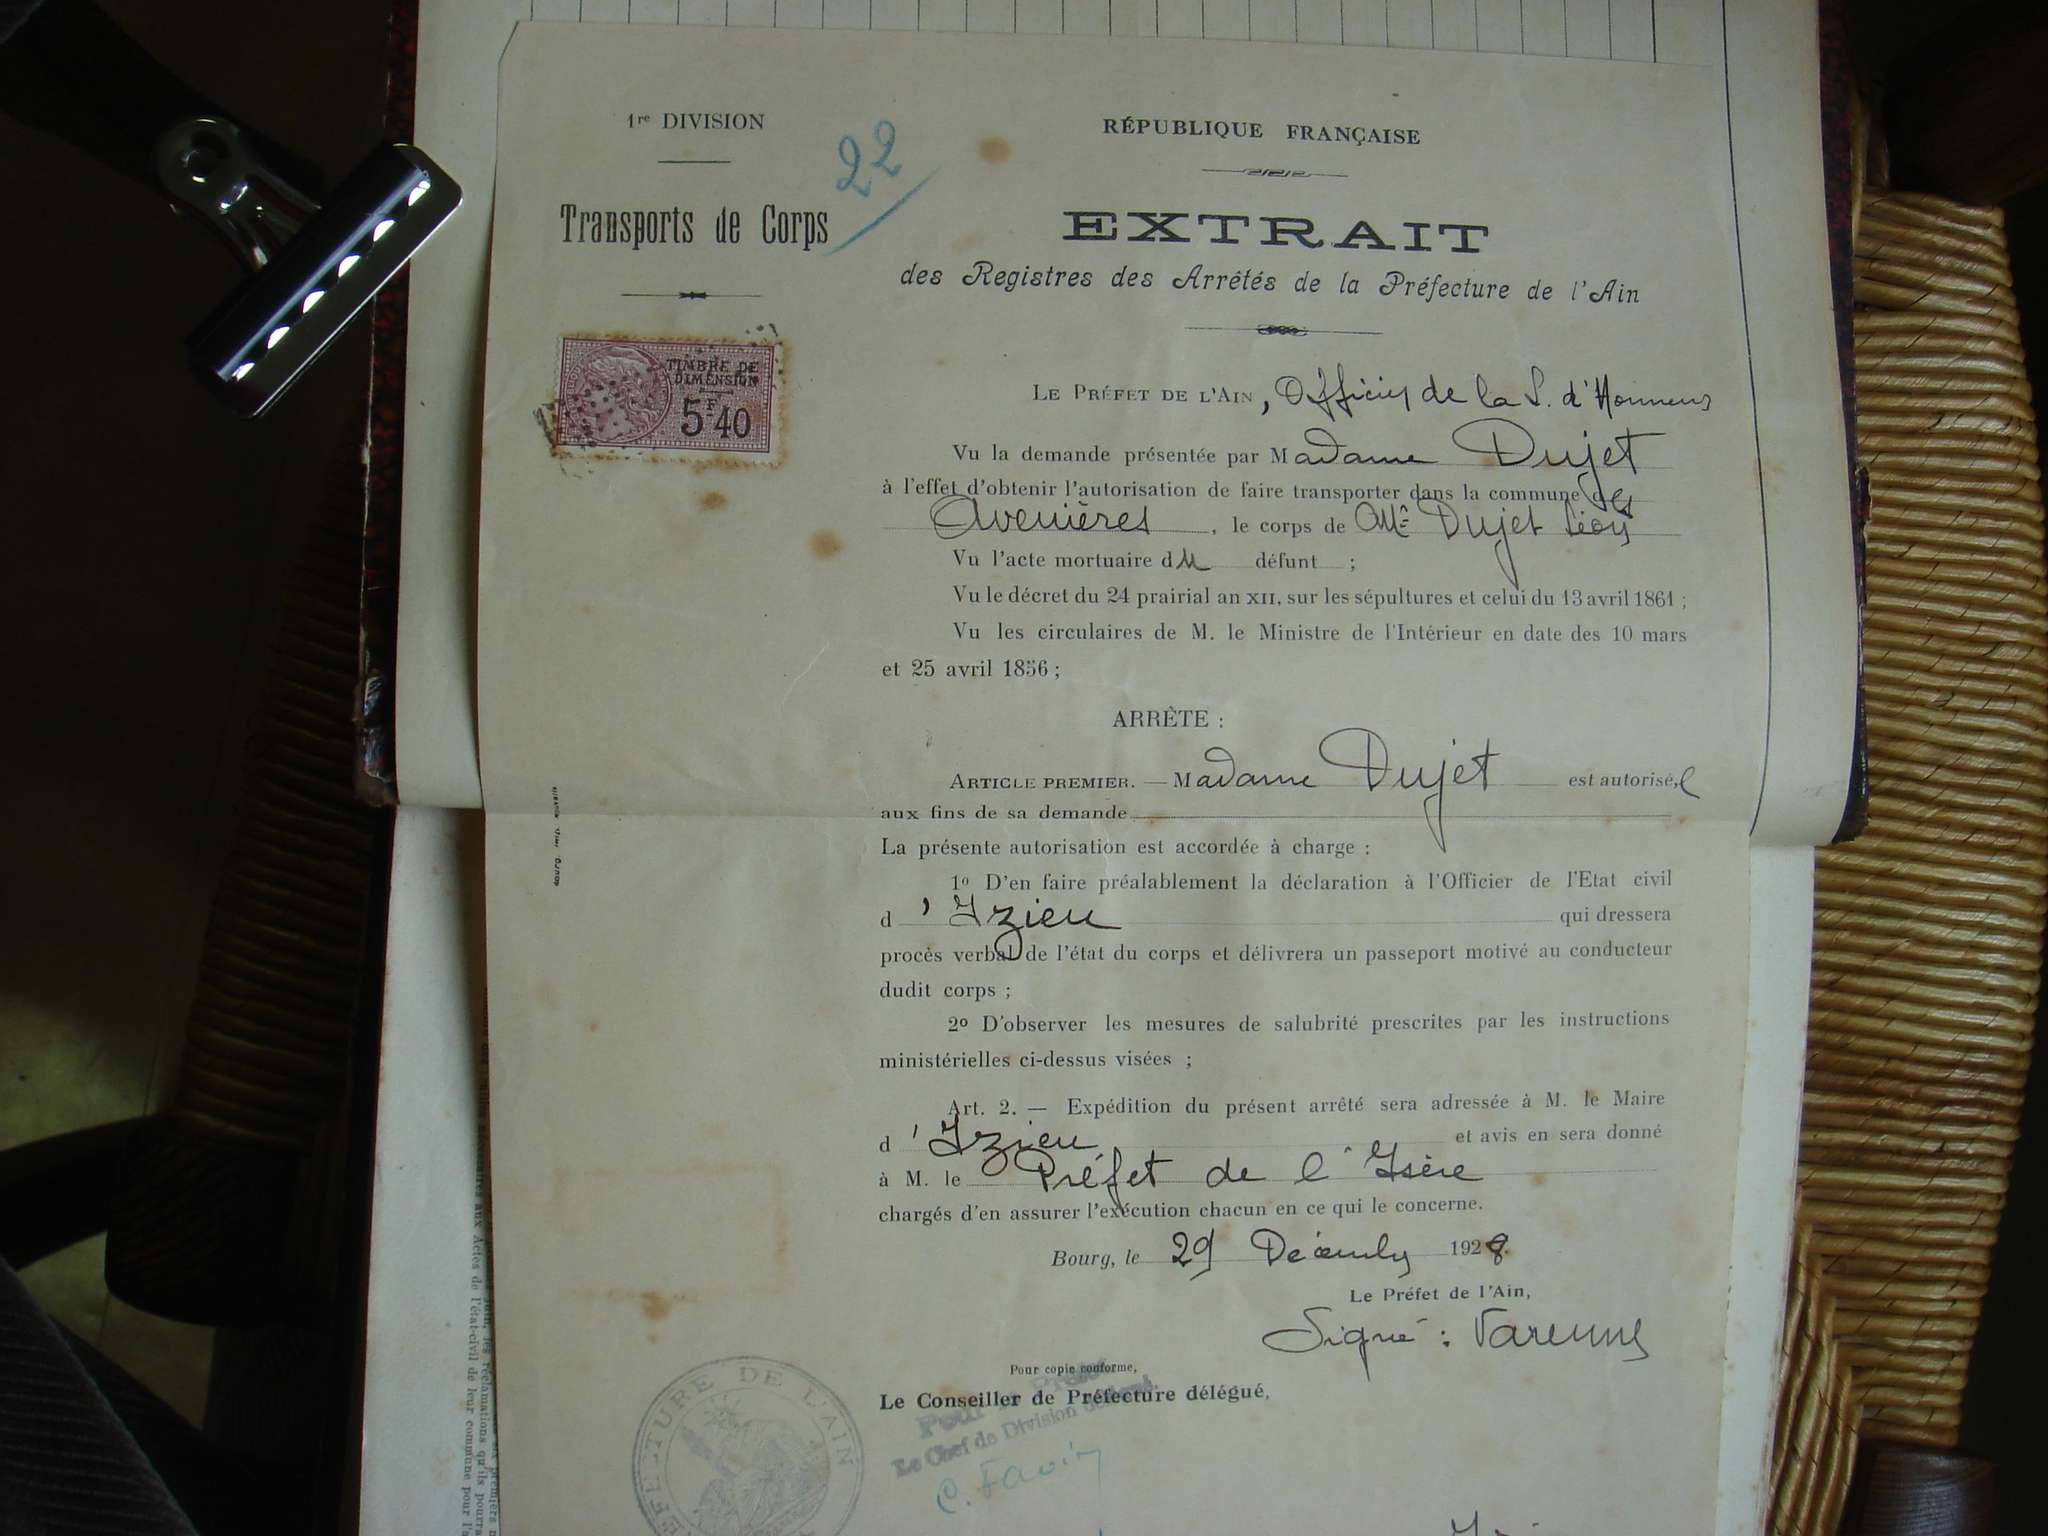 1re DIVISION
22
Transports de Corps
TIMBRE DE
DIMENSION
5F40
RÉPUBLIQUE FRANÇAISE
EXTRAIT
des Registres des Arrêtés de la Préfecture de l'Ain
LE PRÉFET DE L'AIN, Officier de la L. d'Honneur
Vu la demande présentée par Madame Dujet
à l'effet d'obtenir l'autorisation de faire transporter dans la commune des
Avenières, le corps de Mr Dujet Léon
Vu l'acte mortuaire du défunt ;
Vu le décret du 24 prairial an XII, sur les sépultures et celui du 13 avril 1861 ;
Vu les circulaires de M. le Ministre de l'Intérieur en date des 10 mars
et 25 avril 1856 ;
ARRÊTE :
ARTICLE PREMIER. — Madame Dujet est autorisée
aux fins de sa demande
La présente autorisation est accordée à charge :
1º D'en faire préalablement la déclaration à l'Officier de l'Etat civil
d'Izieu qui dressera
procès verbal de l'état du corps et délivrera un passeport motivé au conducteur
dudit corps ;
2º D'observer les mesures de salubrité prescrites par les instructions
ministérielles ci-dessus visées ;
Art. 2. — Expédition du présent arrêté sera adressée à M. le Maire
d'Izieu et avis en sera donné
à M. le Préfet de l'Isère
chargés d'en assurer l'exécution chacun en ce qui le concerne.
Bourg, le 29 Décembre 1928.
Le Préfet de l'Ain,
Signé : Varenne
Pour copie conforme,
Le Conseiller de Préfecture délégué,
Le Chef de Division délégué
C. Favin
PRÉFECTURE DE L'AIN